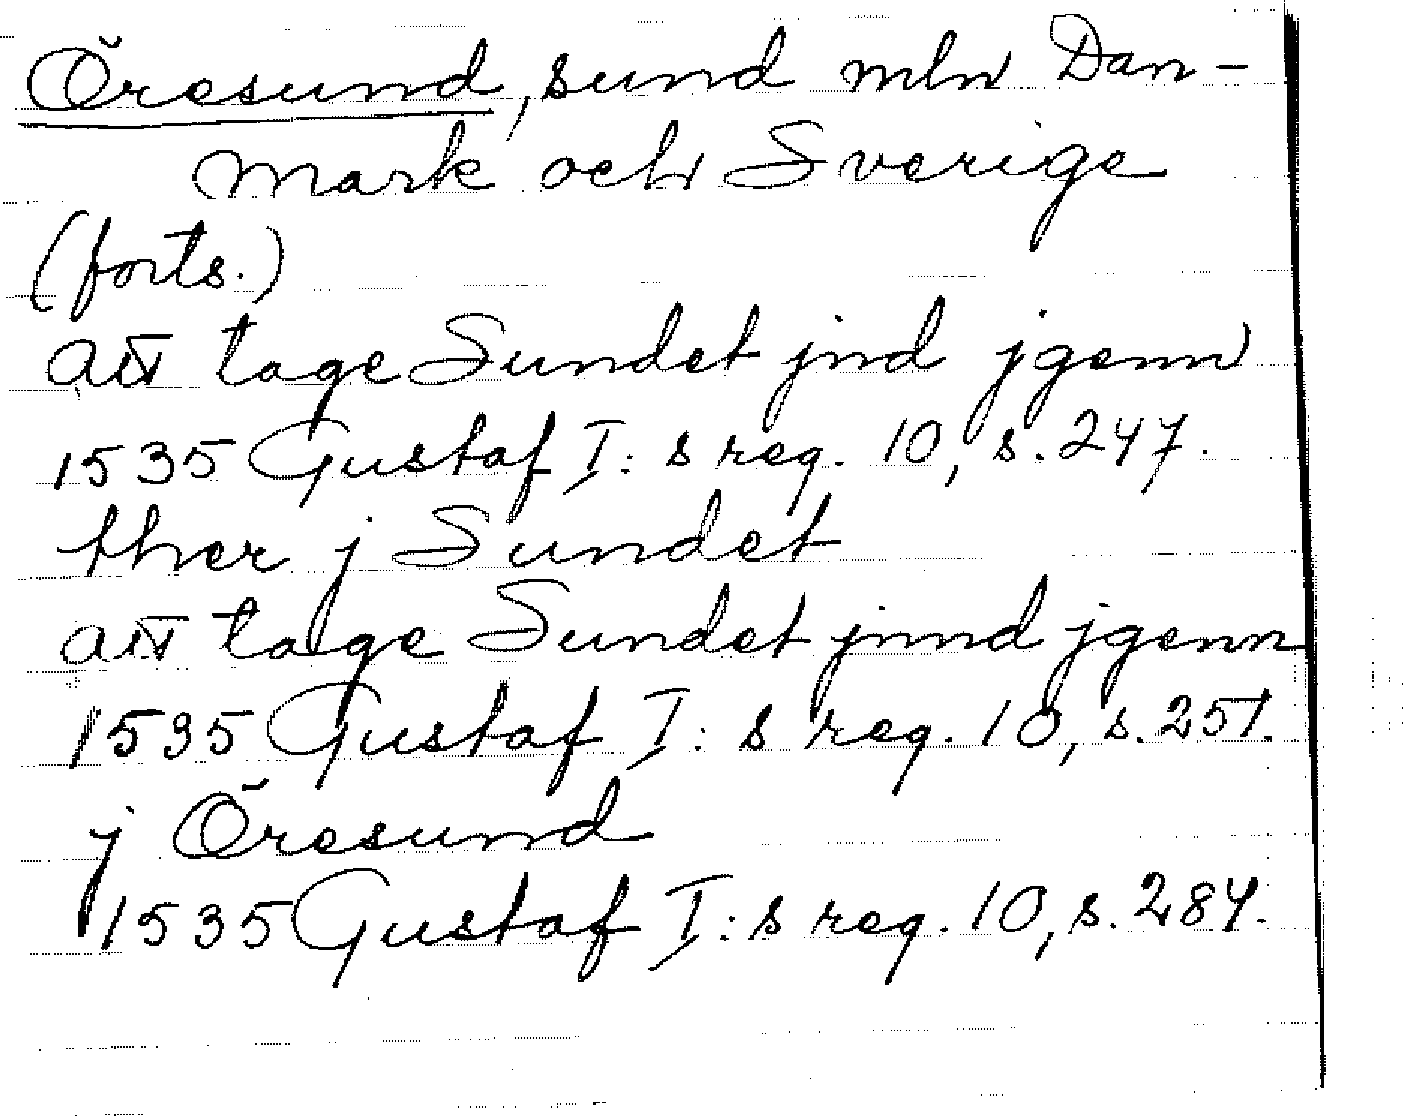 Öresund, sund mln Dan-
mark och Sverige
(forts.)
att tage Sundet jnd jgenn
1535 Gustaf I:s reg. 10, s. 247.
ther j Sundet
att tage Sundet jnnd jgenn
1535 Gustaf I:s reg. 10, s. 251.
j Öresund
1535 Gustaf I:s reg. 10, s. 284.